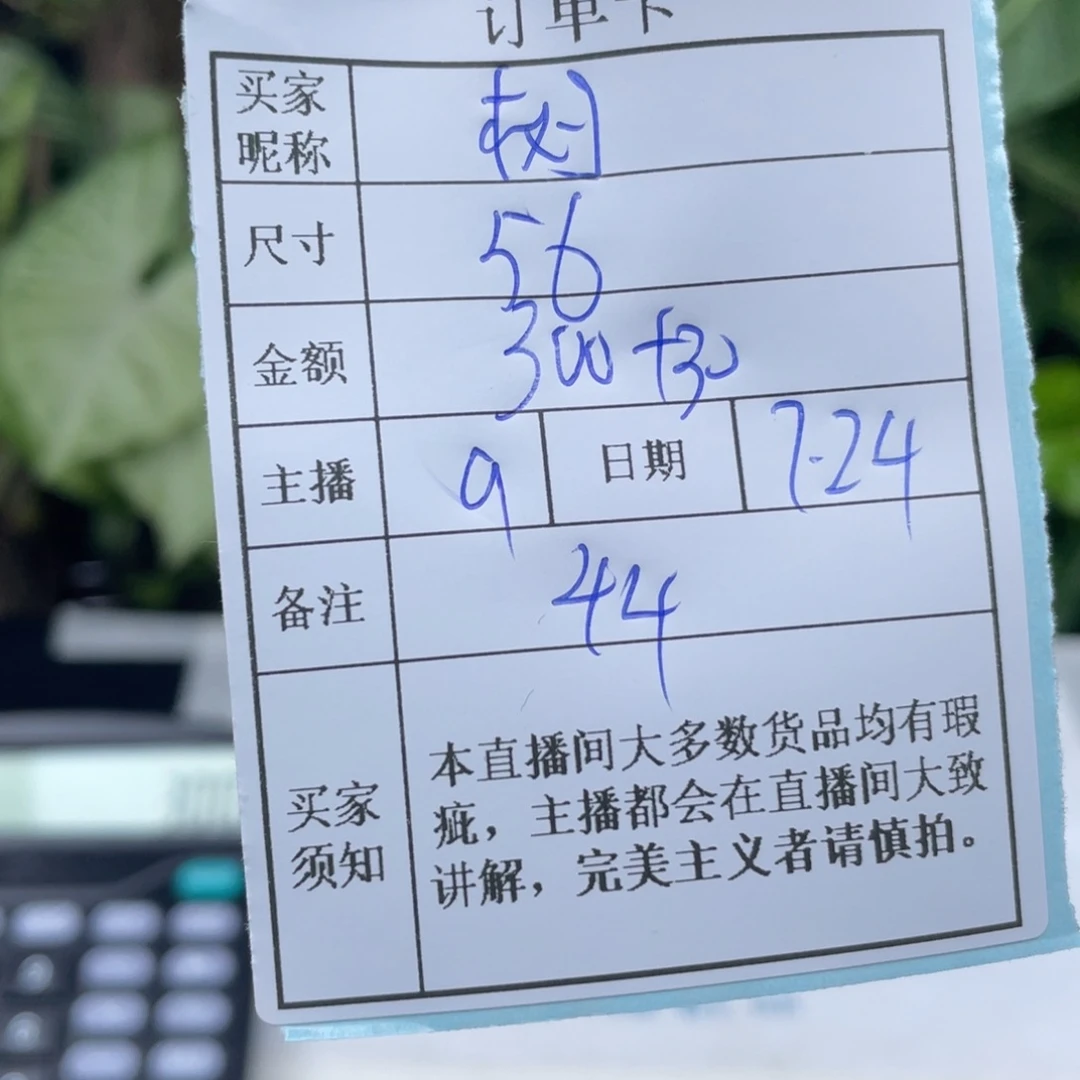 订单卡
买家昵称 树
尺寸 56
金额 300+30
主播 9 日期 7.24
备注 44
买家须知
本直播间大多数货品均有瑕
疵，主播都会在直播间大致
讲解，完美主义者请慎拍。